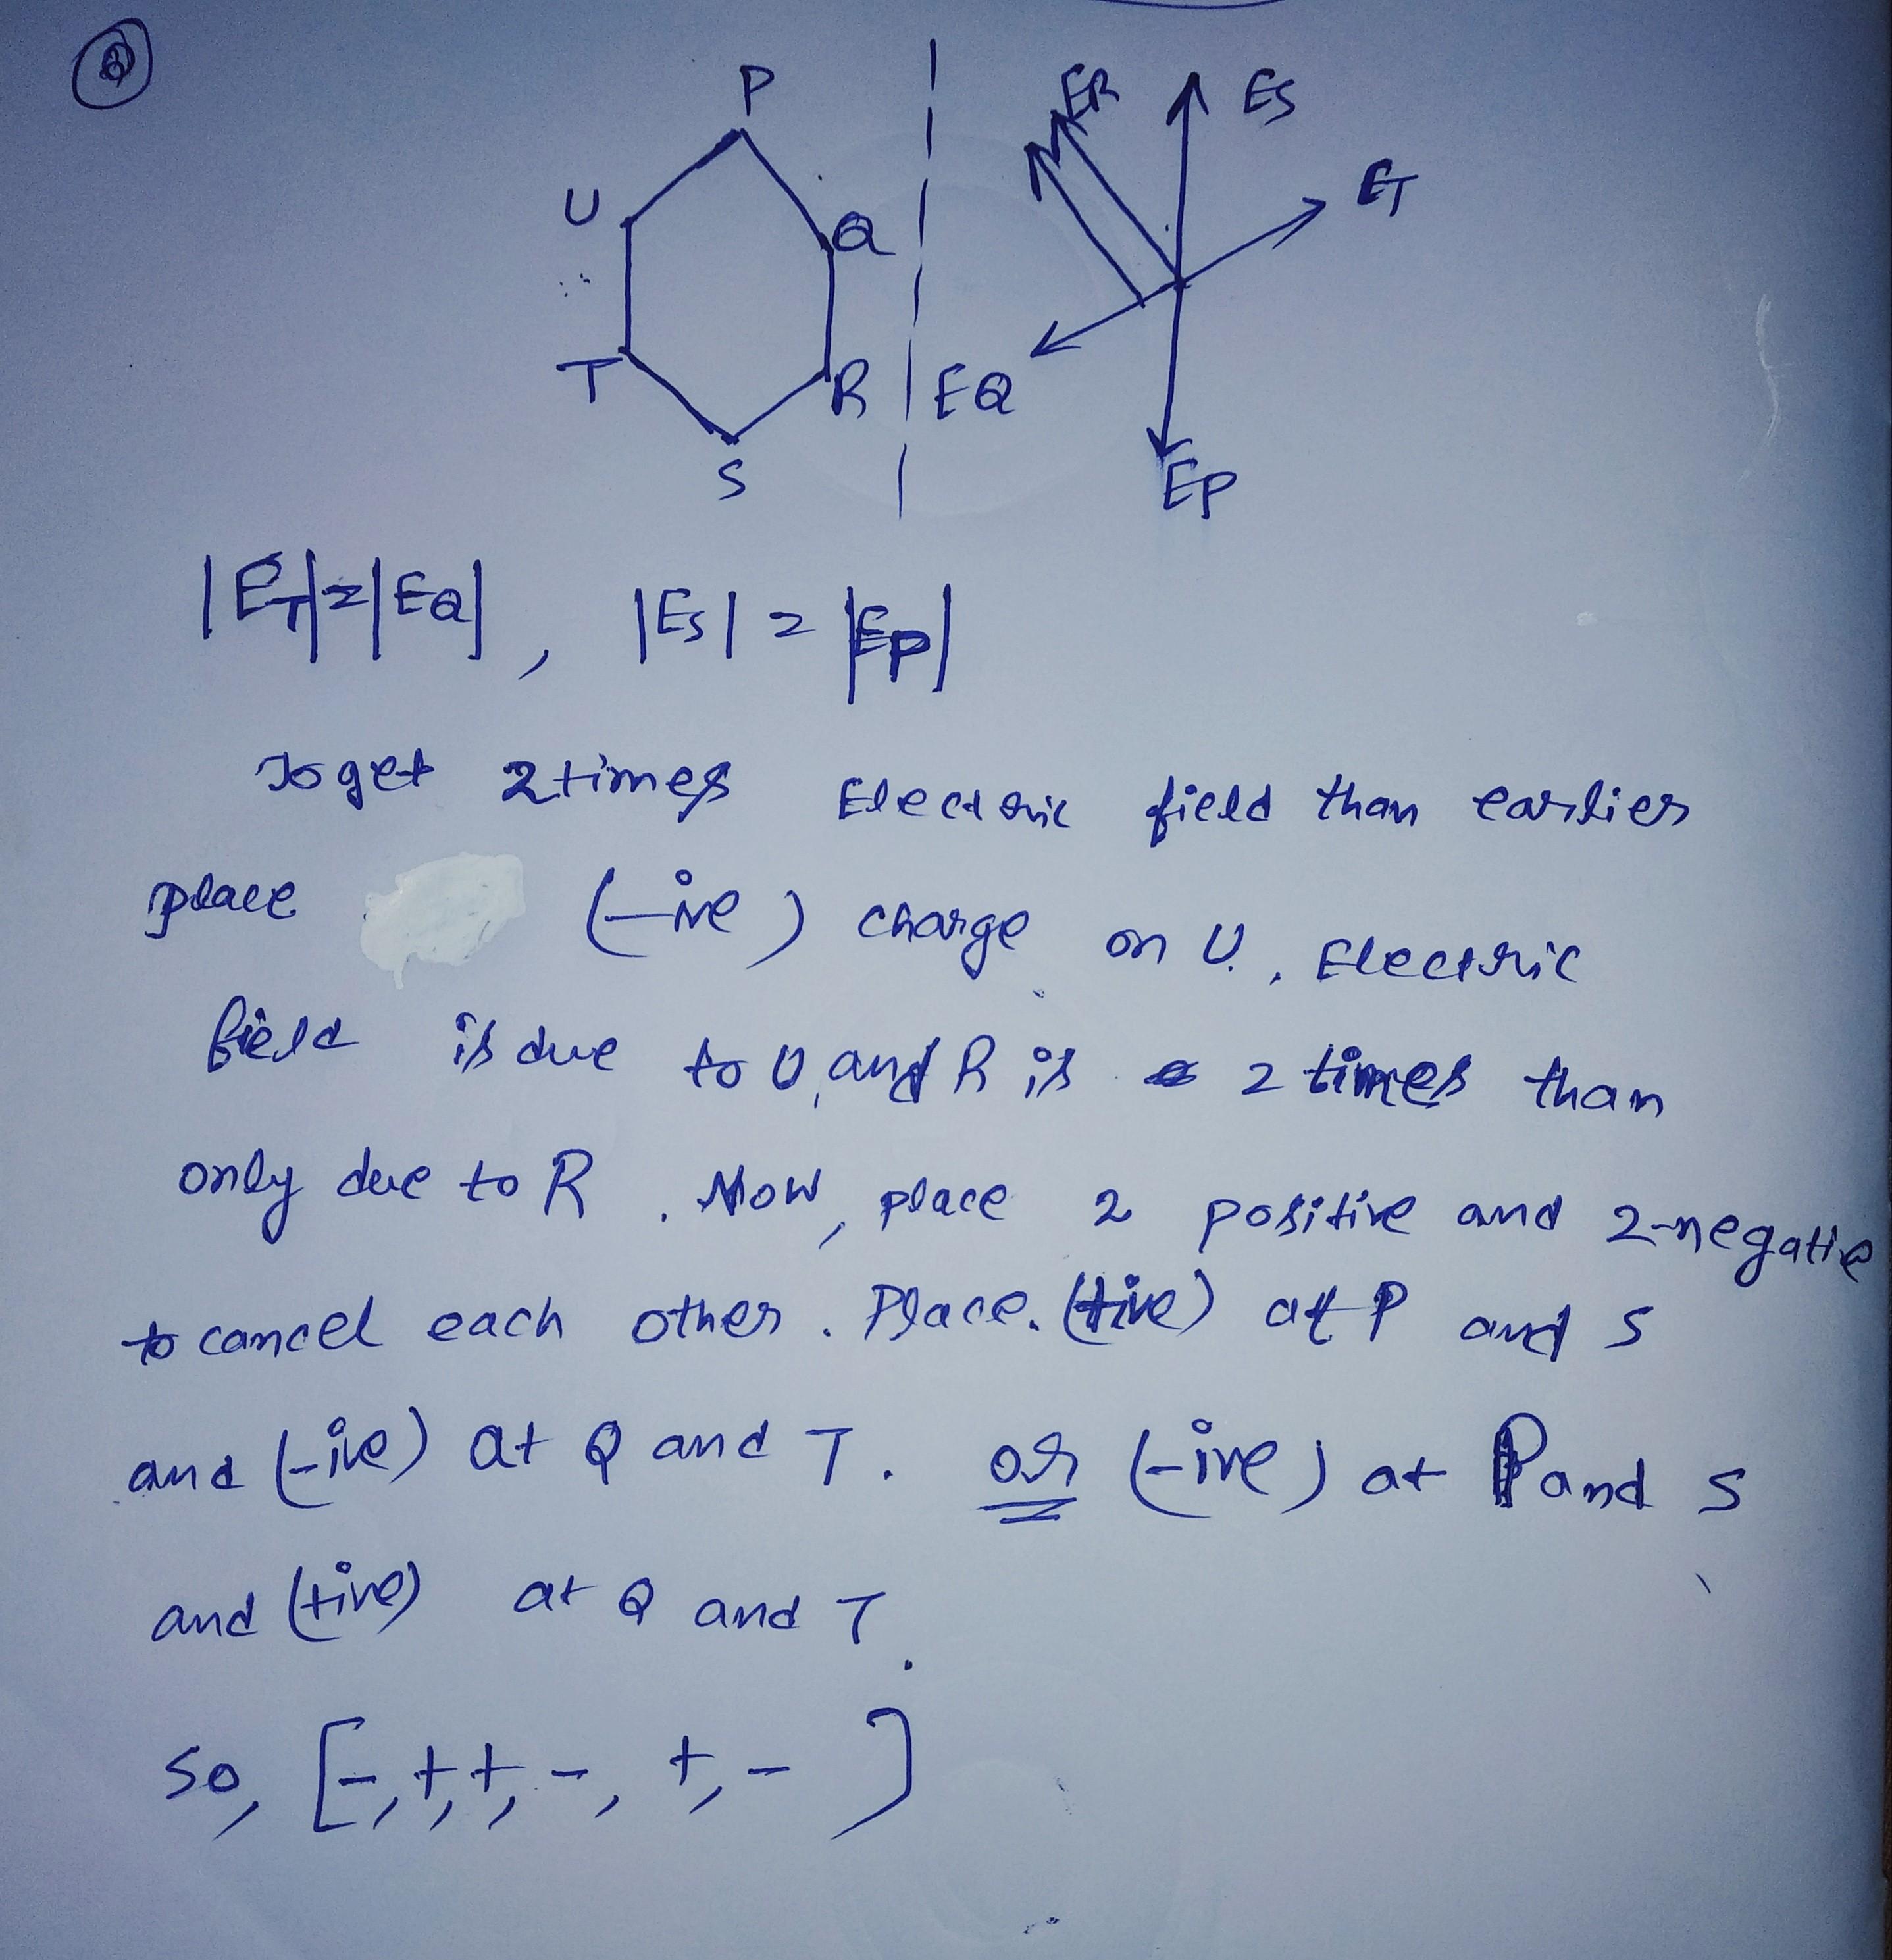 Q
P
U
Q
T
R
S
ER
ES
ET
EQ
EP
|ET|=|EQ|, |ES| = |EP|
To get 2 times Electric field than earlier
place (-ive) charge on U., Electric
field is due to U, and R is 2 times than
only due to R. Now, place 2 positive and 2-negative
to cancel each other. Place. (+ive) at P and S
and (-ive) at Q and T. or (-ive) at P and S
and (+ive) at Q and T.
so, [-,+,+,-, +,- ]